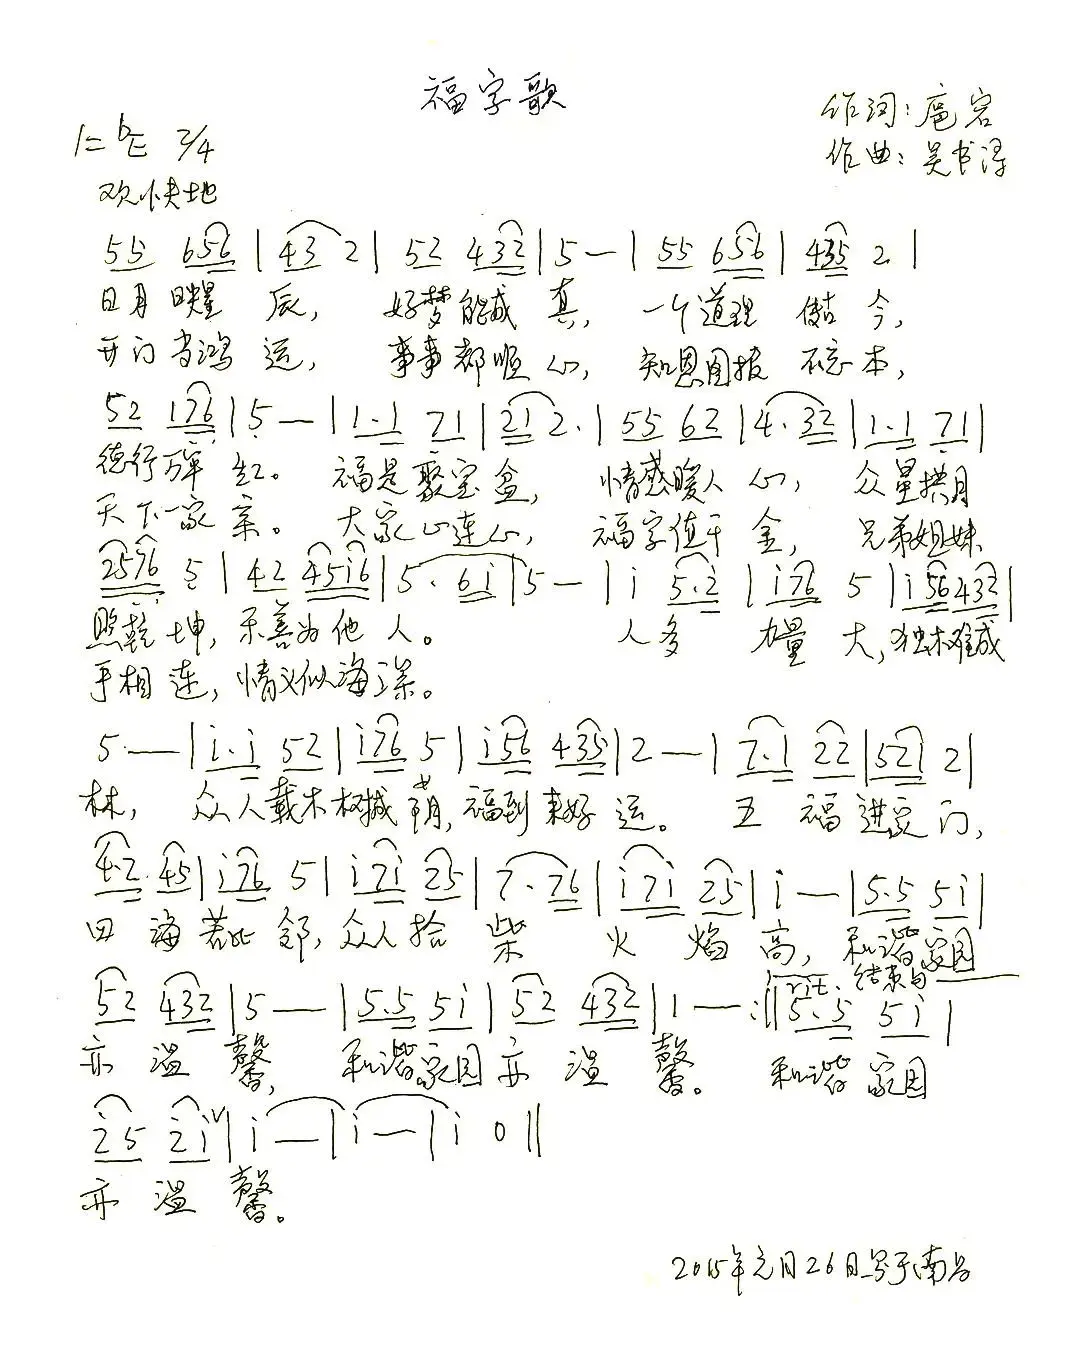 福字歌
作词:扈容
1=ᵇE 2/4
作曲:吴书淳
欢快地
55 656 | 43 2 | 52 432 | 5 — | 55 656 | 435 2 |
日月映星 辰, 好梦能成 真, 一个道理 传古 今,
开门当鸿 运, 事事都顺 心, 知恩图报 不忘 本,
52 176 | 5 — | 1.1 71 | 21 2. | 55 62 | 4.32 | 1.1 71 |
德行万年 红。 福是聚宝 盆, 情感暖人 心, 众星拱月
天下一家 亲。 大家心连 心, 福字值千 金, 兄弟姐妹
2576 5 | 42 45i6 | 5.6i | 5 — | i 5.i | i76 5 | i56432 |
照乾 坤, 乐善为他 人。 人多 力量 大, 独木难成
手相 连, 情义似海 深。
5 — | i.i 52 | i76 5 | i56 435 | 2 — | 7.1 22 | 521 2 |
林, 众人栽木树成 荫, 福到来好 运。 五 福 进家 门,
4.2 45 | i76 5 | i7i 25 | 7.76 | i7i 25 | i — | 5.5 5i |
四 海 若比 邻, 众人 拾 柴 火 焰 高, 和谐家园
rit. 结束句
52 432 | 5 — | 5.5 5i | 52 432 | 1 — :‖ 5.5 5i |
亦 温 馨, 和谐家园 亦 温 馨。 和谐 家园
i5 2i | i — | i — | i 0 ‖
亦 温 馨。
2015年元月26日写于南昌